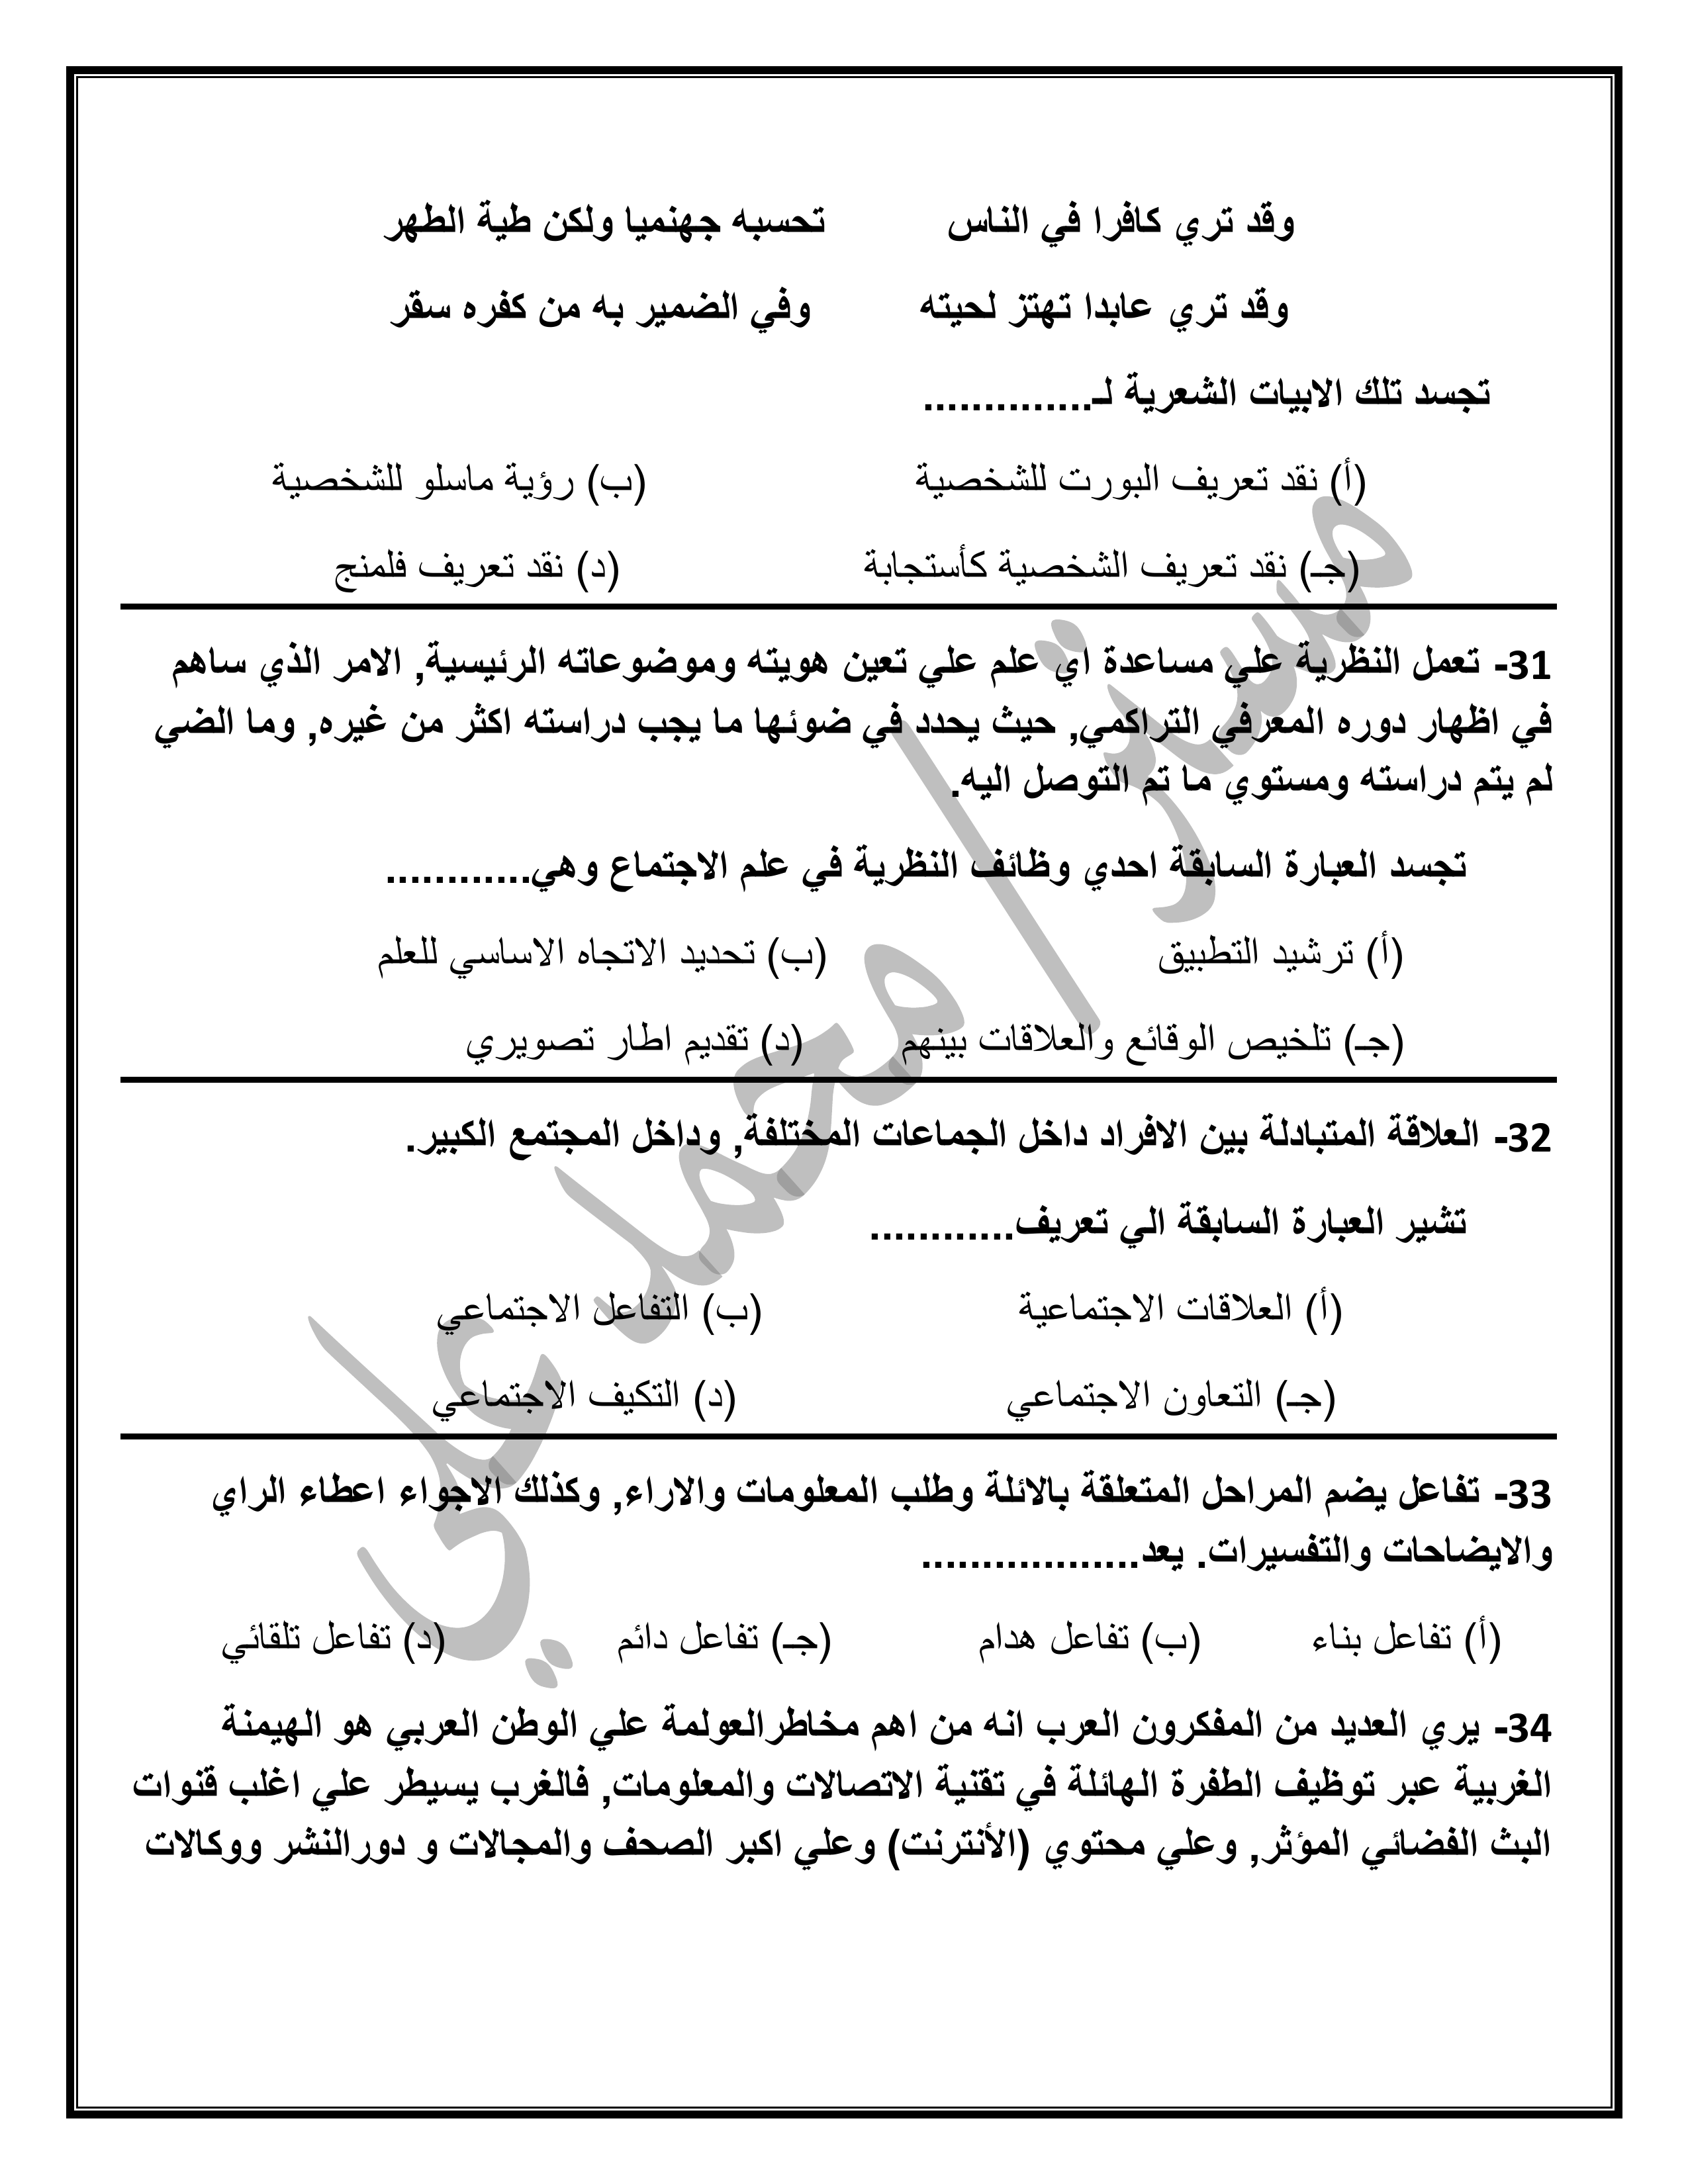 وقد تري كافرا في الناس تحسبه جهنميا ولكن طية الطهر
وقد تري عابدا تهتز لحيته وفي الضمير به من كفره سقر
تجسد تلك الابيات الشعرية لـ..............
(أ) نقد تعريف البورت للشخصية (ب) رؤية ماسلو للشخصية
(جـ) نقد تعريف الشخصية كأستجابة (د) نقد تعريف فلمنج
31- تعمل النظرية علي مساعدة اي علم علي تعين هويته وموضوعاته الرئيسية, الامر الذي ساهم
في اظهار دوره المعرفي التراكمي, حيث يحدد في ضوئها ما يجب دراسته اكثر من غيره, وما الضي
لم يتم دراسته ومستوي ما تم التوصل اليه.
تجسد العبارة السابقة احدي وظائف النظرية في علم الاجتماع وهي............
(أ) ترشيد التطبيق (ب) تحديد الاتجاه الاساسي للعلم
(جـ) تلخيص الوقائع والعلاقات بينهم (د) تقديم اطار تصويري
32- العلاقة المتبادلة بين الافراد داخل الجماعات المختلفة, وداخل المجتمع الكبير.
تشير العبارة السابقة الي تعريف............
(أ) العلاقات الاجتماعية (ب) التفاعل الاجتماعي
(جـ) التعاون الاجتماعي (د) التكيف الاجتماعي
33- تفاعل يضم المراحل المتعلقة بالائلة وطلب المعلومات والاراء, وكذلك الاجواء اعطاء الراي
والايضاحات والتفسيرات. يعد..................
(أ) تفاعل بناء (ب) تفاعل هدام (جـ) تفاعل دائم (د) تفاعل تلقائي
34- يري العديد من المفكرون العرب انه من اهم مخاطرالعولمة علي الوطن العربي هو الهيمنة
الغربية عبر توظيف الطفرة الهائلة في تقنية الاتصالات والمعلومات, فالغرب يسيطر علي اغلب قنوات
البث الفضائي المؤثر, وعلي محتوي (الأنترنت) وعلي اكبر الصحف والمجالات و دورالنشر ووكالات
مستر/ محمد علي